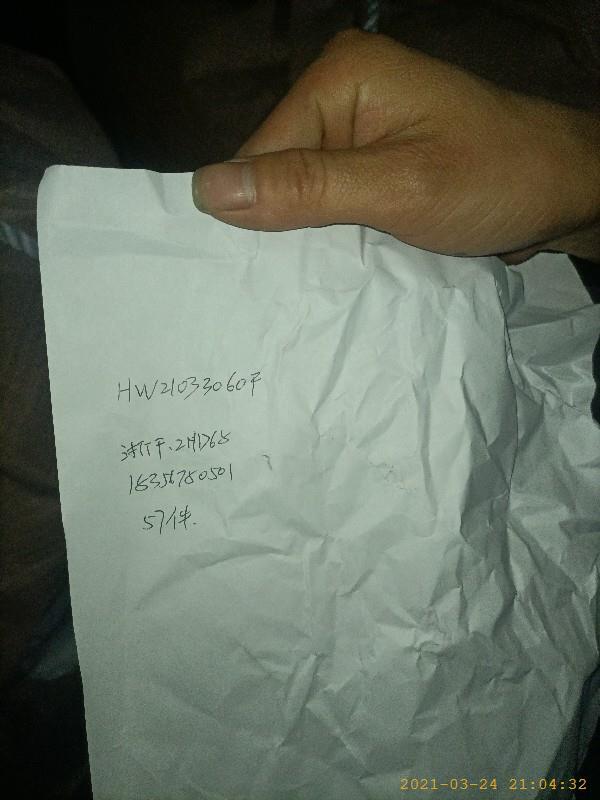 HW21033060F
浙F.2HD68
15356780501
57件.
2021-03-24 21:04:32